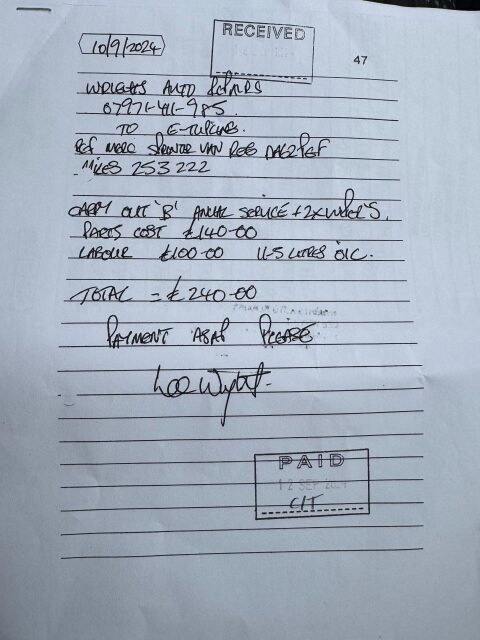 RECEIVED
10/9/2024
47
WRIGHTS AUTO REPAIRS
07971-411-985.
TO E-TURNERS.
REF MERC SPRINTER VAN REG
MILES 253222
CARRY OUT 'B' ANUAL SERVICE + 2X WIPERS.
PARTS COST £140-00
LABOUR £100-00 11-5 LITRES OIL.
TOTAL = £240-00
PAYMENT ASAP PLEASE
Lee Wright.
PAID
12 SEP 2024
C/T